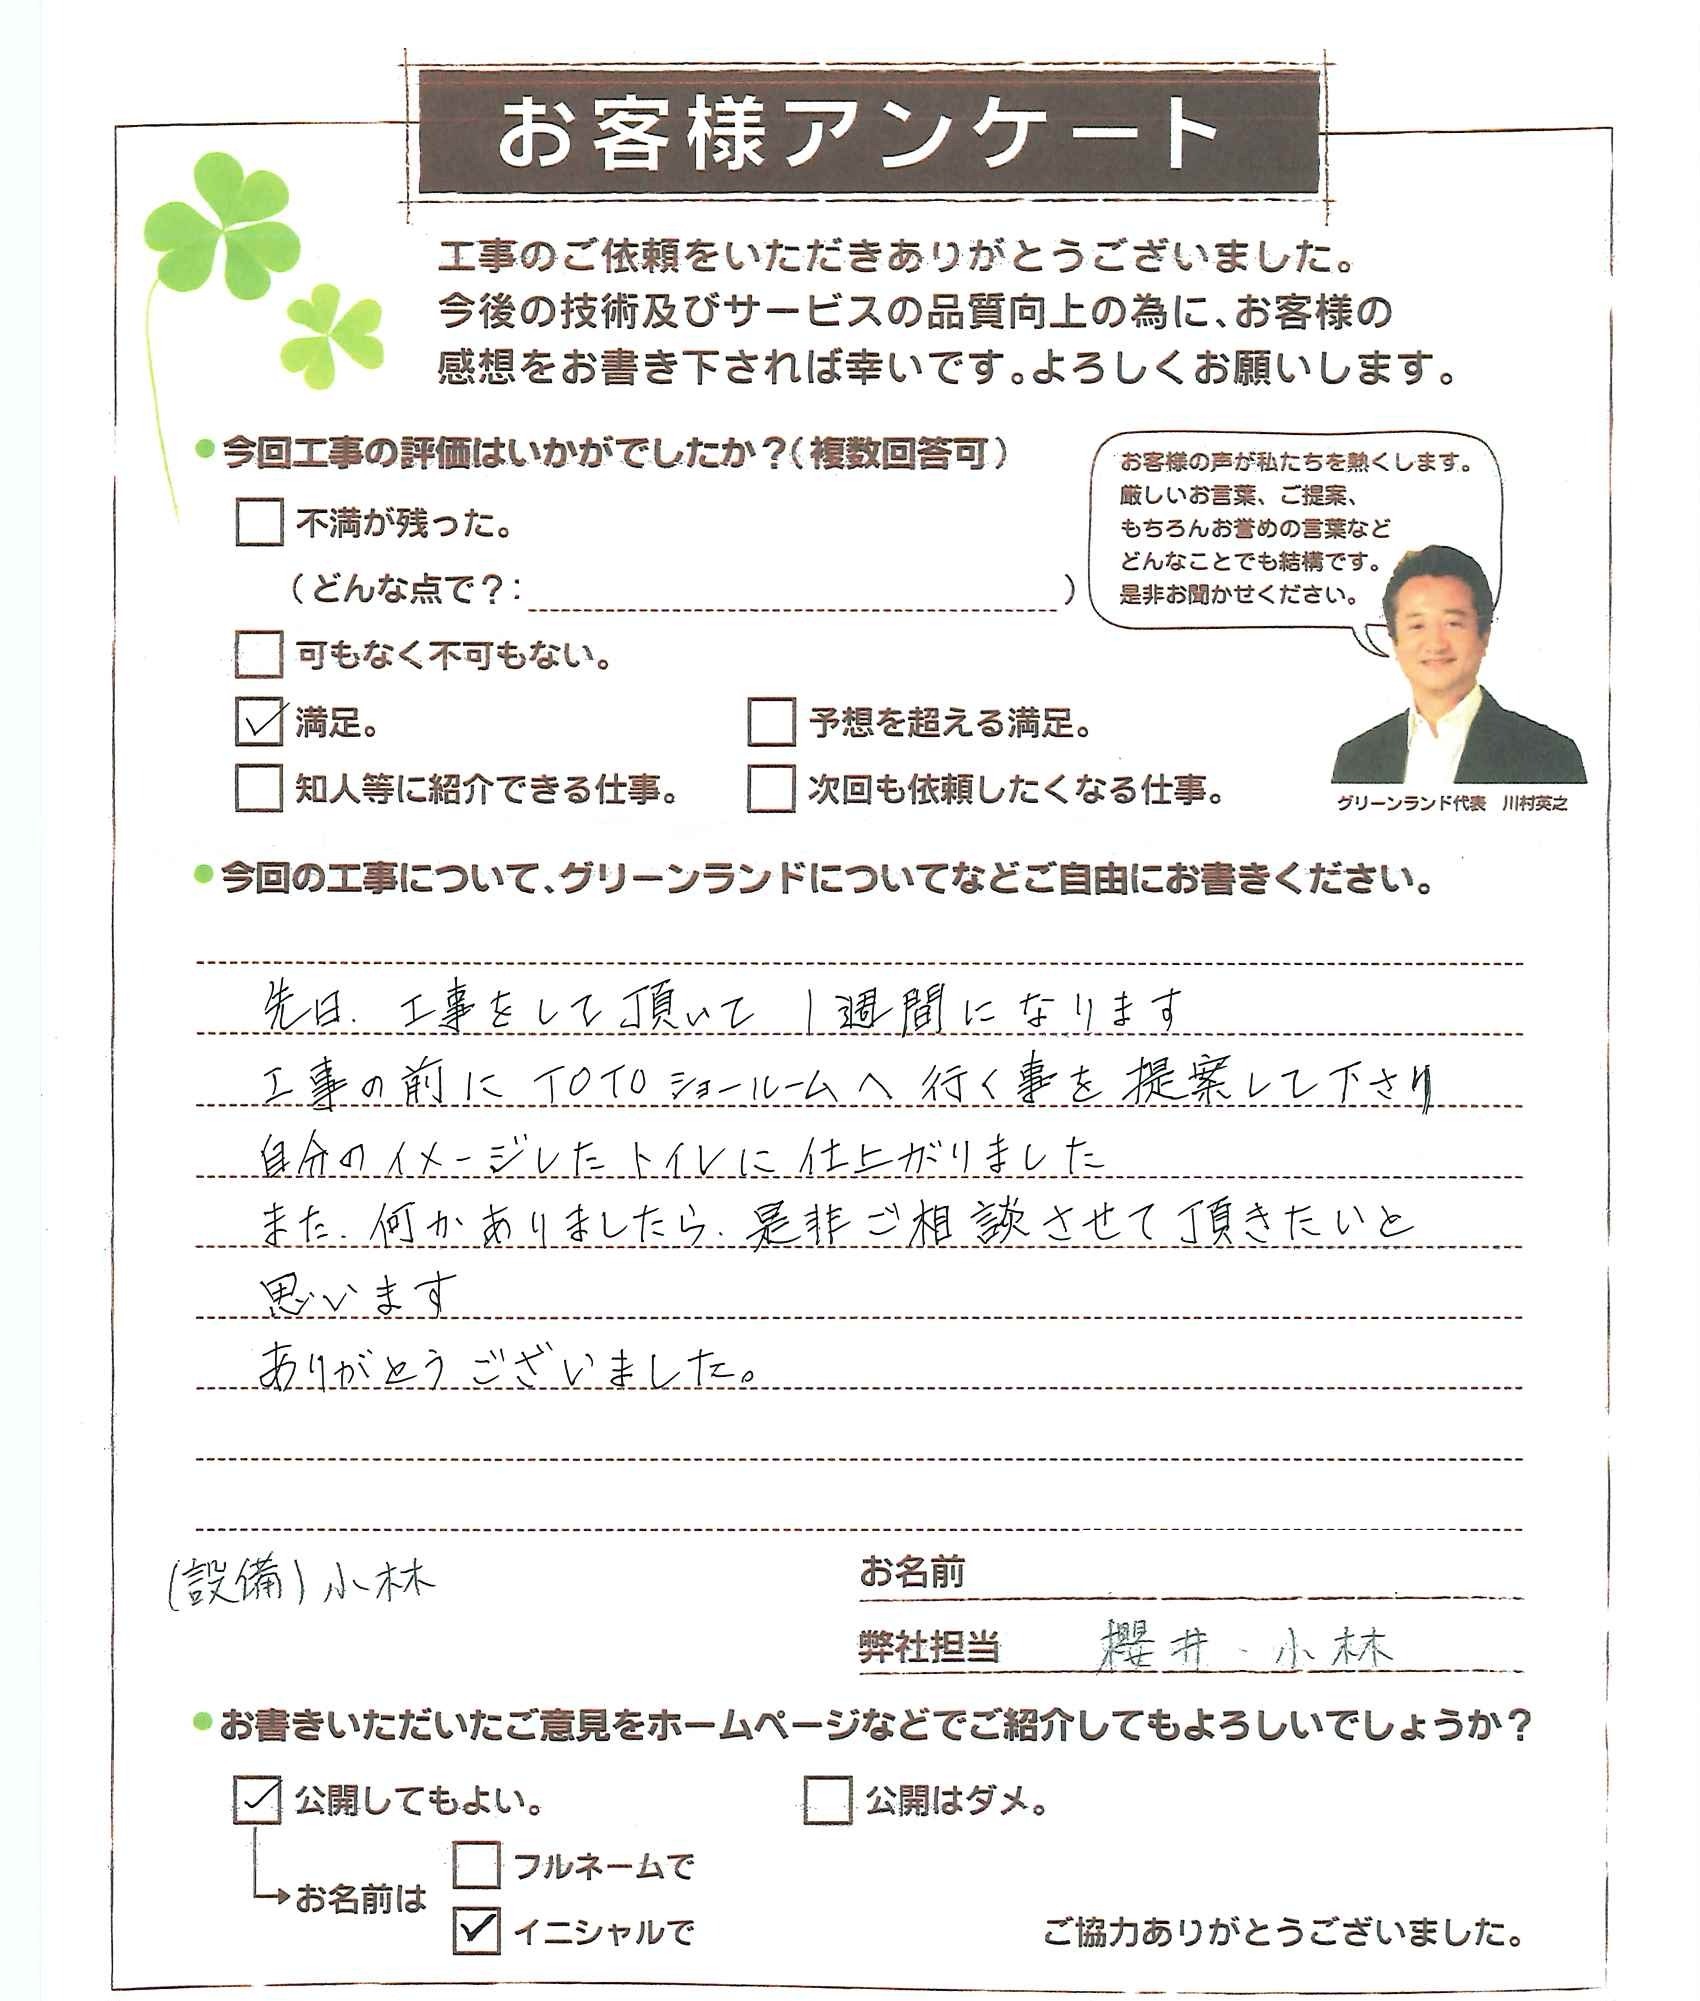 お客様アンケート
工事のご依頼をいただきありがとうございました。
今後の技術及びサービスの品質向上の為に、お客様の
感想をお書き下されば幸いです。よろしくお願いします。
今回工事の評価はいかがでしたか？（複数回答可）
お客様の声が私たちを熱くします。
厳しいお言葉、ご提案、
もちろんお誉めの言葉など
どんなことでも結構です。
是非お聞かせください。
グリーンランド代表 川村英之
不満が残った。
（どんな点で？： ）
可もなく不可もない。
満足。 予想を超える満足。
知人等に紹介できる仕事。 次回も依頼したくなる仕事。
今回の工事について、グリーンランドについてなどご自由にお書きください。
先日、工事をして頂いて 1週間になります
工事の前に TOTOショールームへ 行く事を 提案して下さり
自分のイメージしたトイレに 仕上がりました
また、何かありましたら、是非ご相談させて頂きたいと
思います
ありがとうございました。
(設備)小林
お名前
弊社担当 櫻井・小林
お書きいただいたご意見をホームページなどでご紹介してもよろしいでしょうか？
公開してもよい。 公開はダメ。
お名前は
フルネームで
イニシャルで
ご協力ありがとうございました。